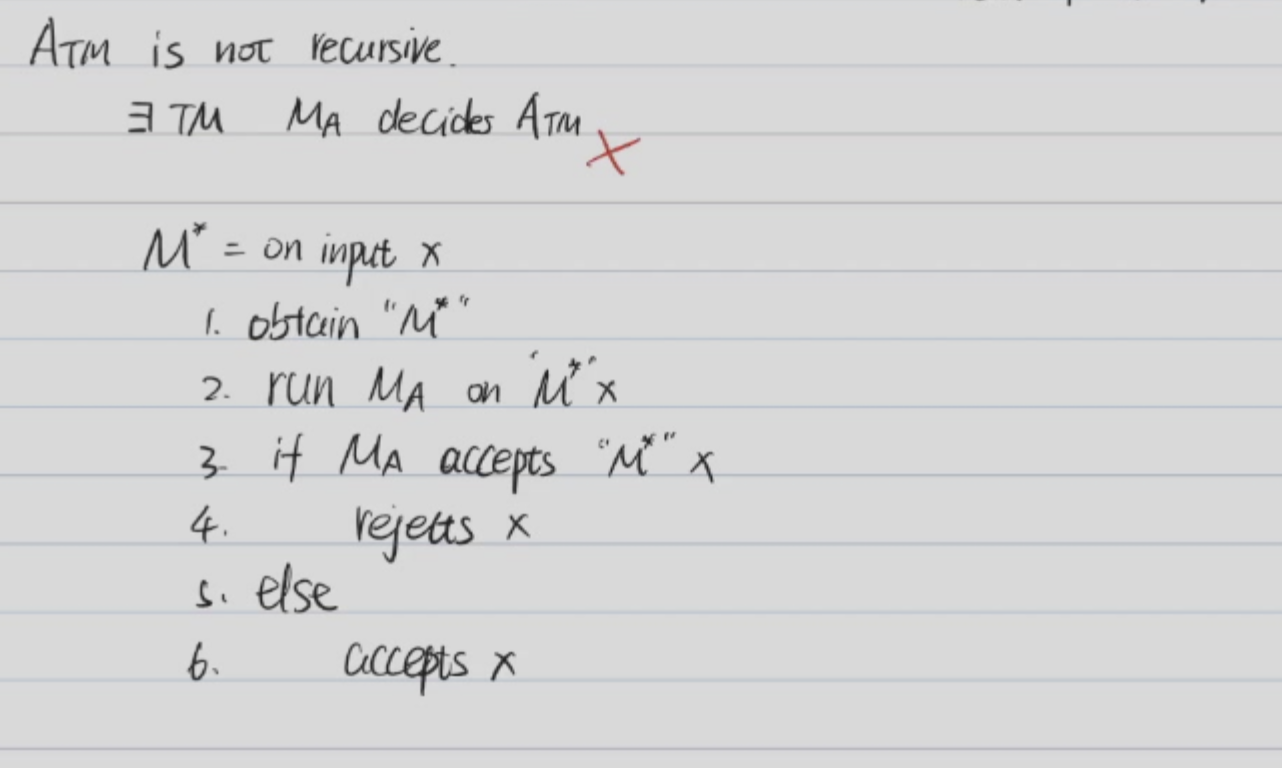 ATM is not recursive.
∃ TM MA decides ATM
M* = on input x
1. obtain "M*"
2. run MA on "M*" x
3. if MA accepts "M*" x
4. rejects x
5. else
6. accepts x